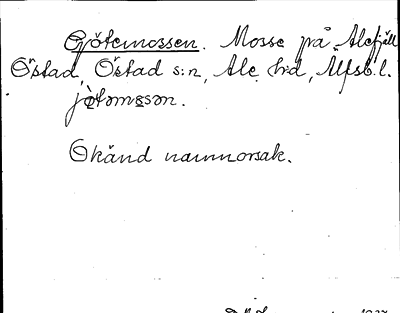 Götemossen. Mosse på Alefjäll
Östad, Östad s:n, Ale h:d, Älfsb. l.
jötəmɷsən.
Okänd namnorsak.